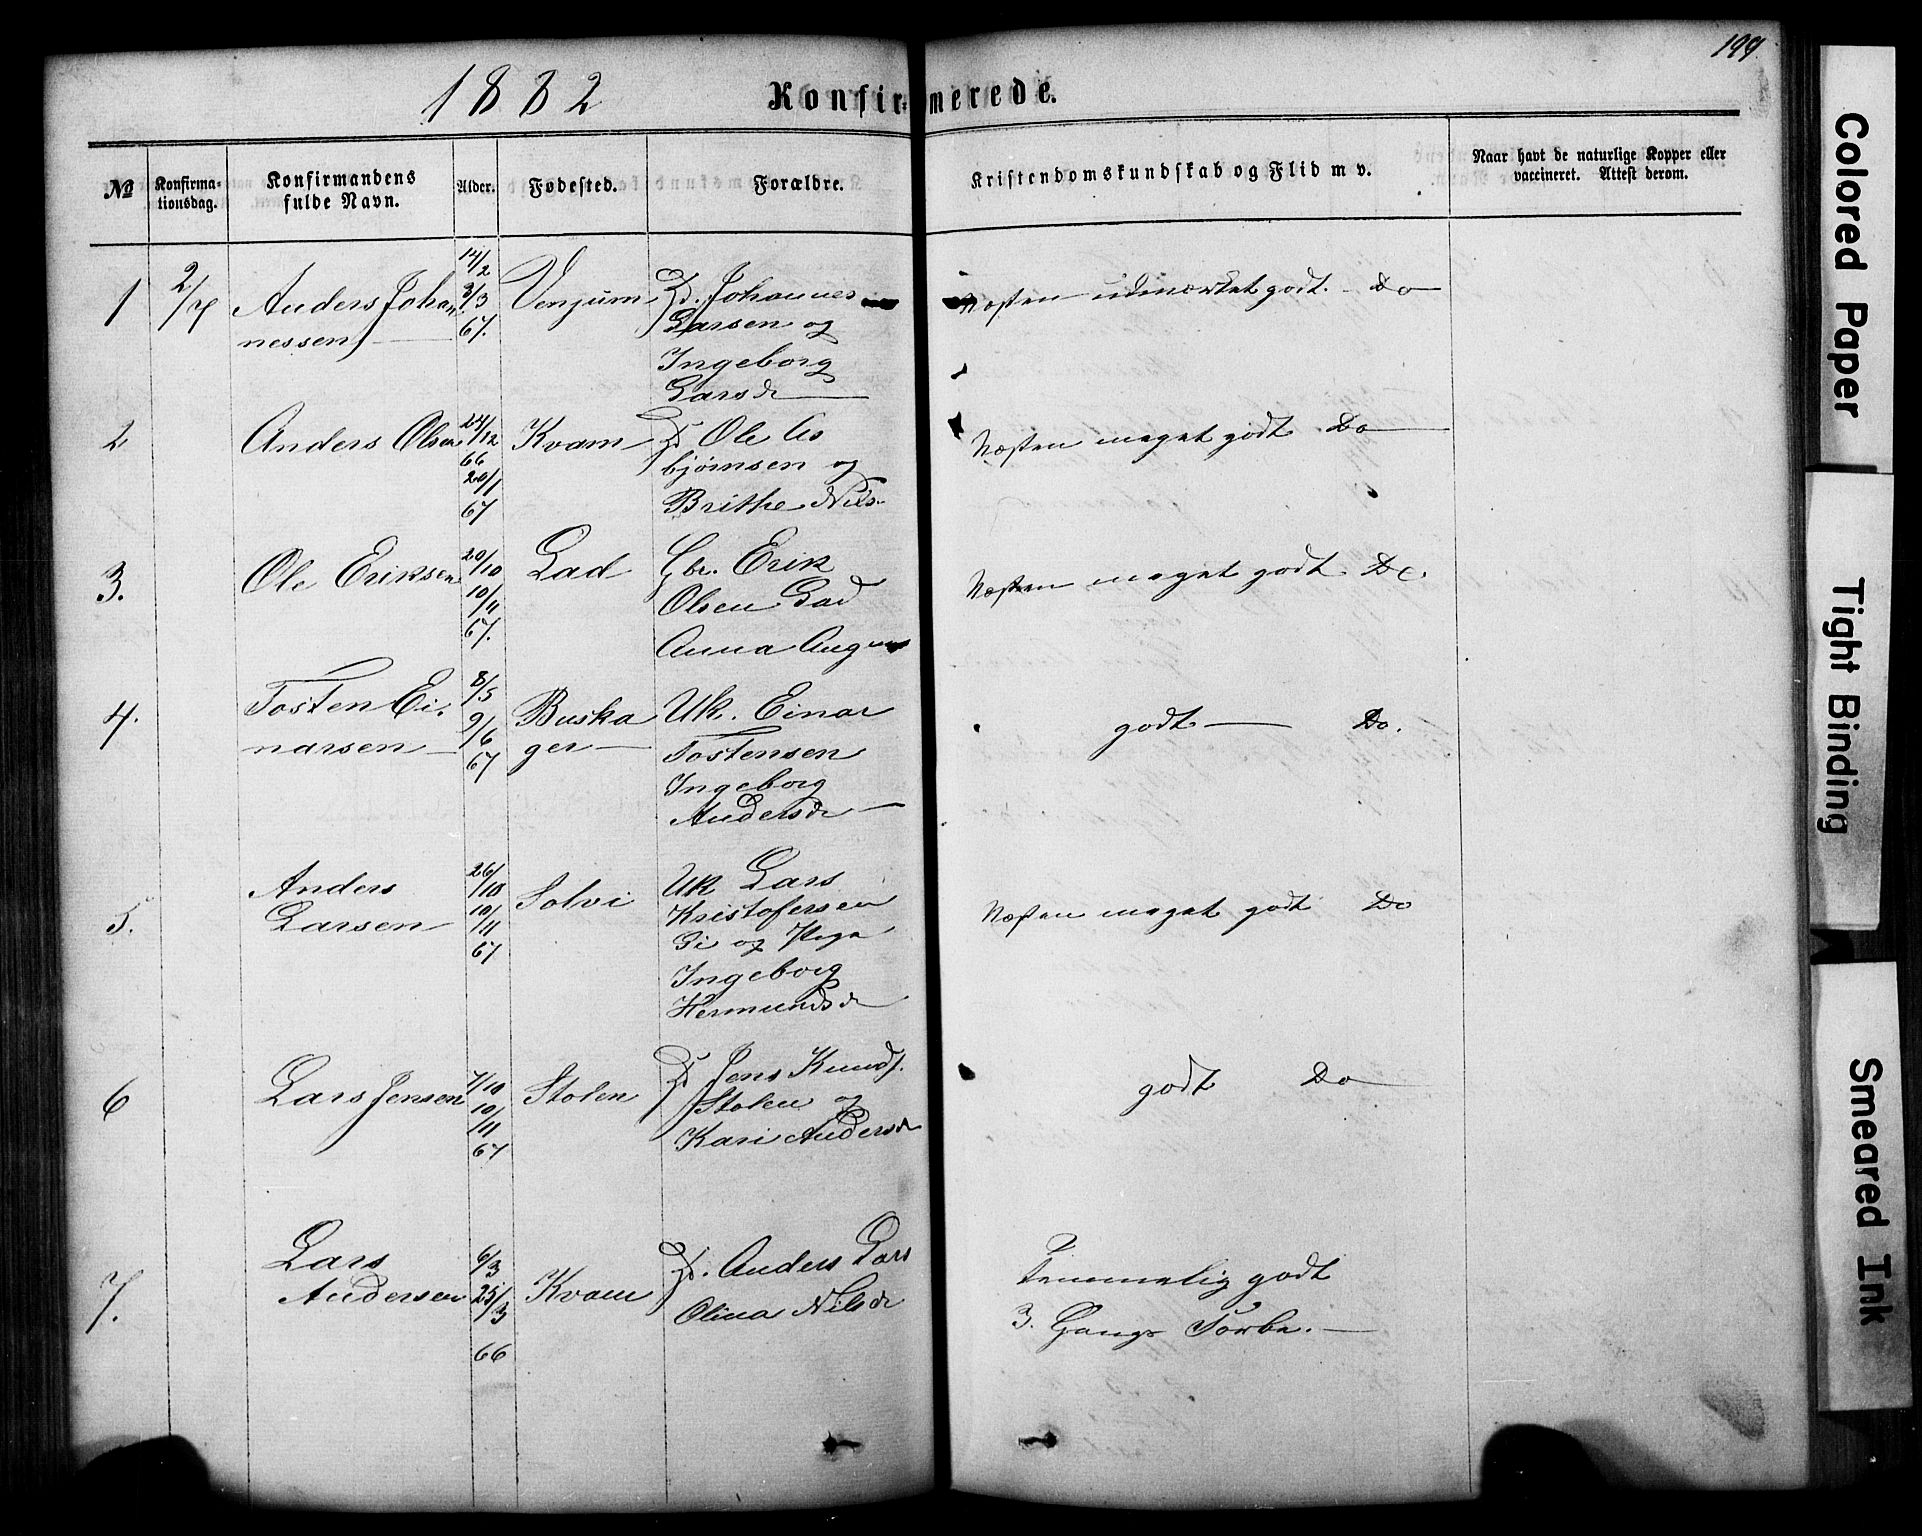 199
1882 Konfirmerede.
№ Konfirma-tionsdag. Konfirmandens fulde Navn. Alder. Fødested. Forældre. Kristendomskundskab og Flid m v. Naar havt de naturlige Kopper eller vaccineret. Attest derom.
1 2/7 Anders Johan 14/2 Venjum Gd. Johannes Næsten udmærket godt. Do
nessen 3/3 Larsen og
67. Ingeborg
Larsdr
2 Anders Olsen 24/12 Kvam Gd Ole As Næsten meget godt Do
66 bjørnsen og
20/1 Brithe Nils
67
3. Ole Eriksen 20/10 Lad Gbr. Erik Næsten meget godt Do.
10/11 Olsen Lad
67. Anna
4. Tosten Ei 8/5 Buska Uk. Einar godt Do.
narsen 9/6 ger Tostensen
67 Ingeborg
Andersdr
5. Anders 26/10 Solvi Uk Lars Næsten meget godt Do
Larsen 10/11 Kristofersen
67 Gi og Pige
Ingeborg
Hermundsdr
6 Lars Jensen 7/10 Stolen Gd Jens Knuds. godt Do
10/11 Stolen og
67 Kari Andersdr
7. Lars 6/3 Kvam Gd. Anders Lars Temmelig godt
Andersen 25/3 Olina Nilsdr 3. Gangs
66
Colored Paper
Tight Binding
Smeared Ink